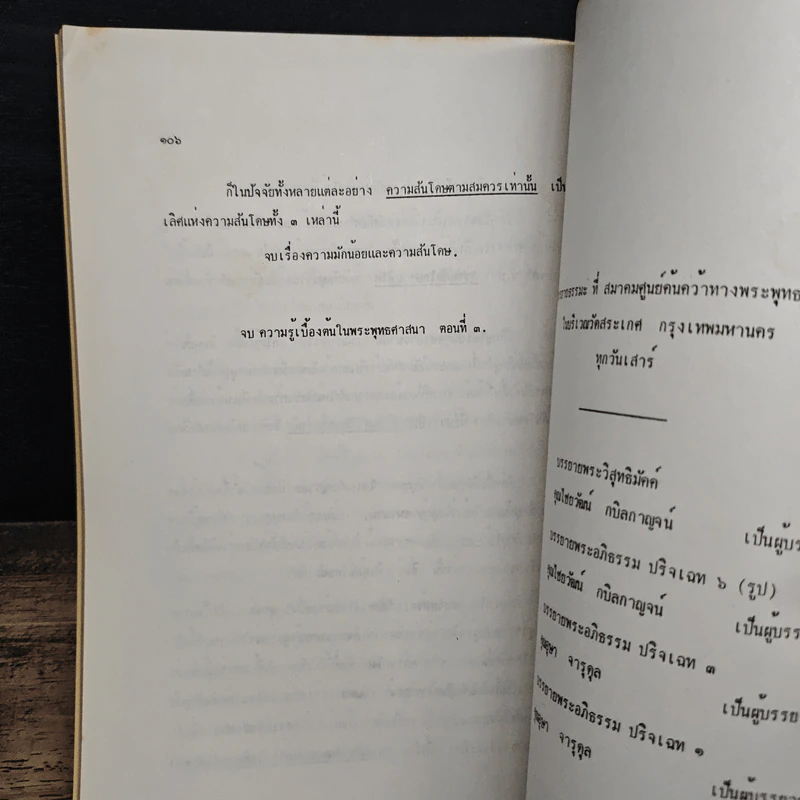 ๑๐๖
ก็ในปัจจัยทั้งหลายแต่ละอย่าง ความสันโดษตามสมควรเท่านั้น เป็น
เลิศแห่งความสันโดษทั้ง ๓ เหล่านี้
จบเรื่องความมักน้อยและความสันโดษ.
จบ ความรู้เบื้องต้นในพระพุทธศาสนา ตอนที่ ๓.
ธรรมะ ที่ สมาคมศูนย์ค้นคว้าทางพระพุทธ
ในบริเวณวัดสระเกศ กรุงเทพมหานคร
ทุกวันเสาร์
บรรยายพระวิสุทธิมัคค์
คุณไชยวัฒน์ กปิลกาญจน์ เป็นผู้บร
บรรยายพระอภิธรรม ปริจเฉท ๖ (รูป)
คุณไชยวัฒน์ กปิลกาญจน์ เป็นผู้บรร
บรรยายพระอภิธรรม ปริจเฉท ๓
จารุดุล เป็นผู้บรรย
บรรยายพระอภิธรรม ปริจเฉท ๑
จารุดุล เป็นผู้บรร